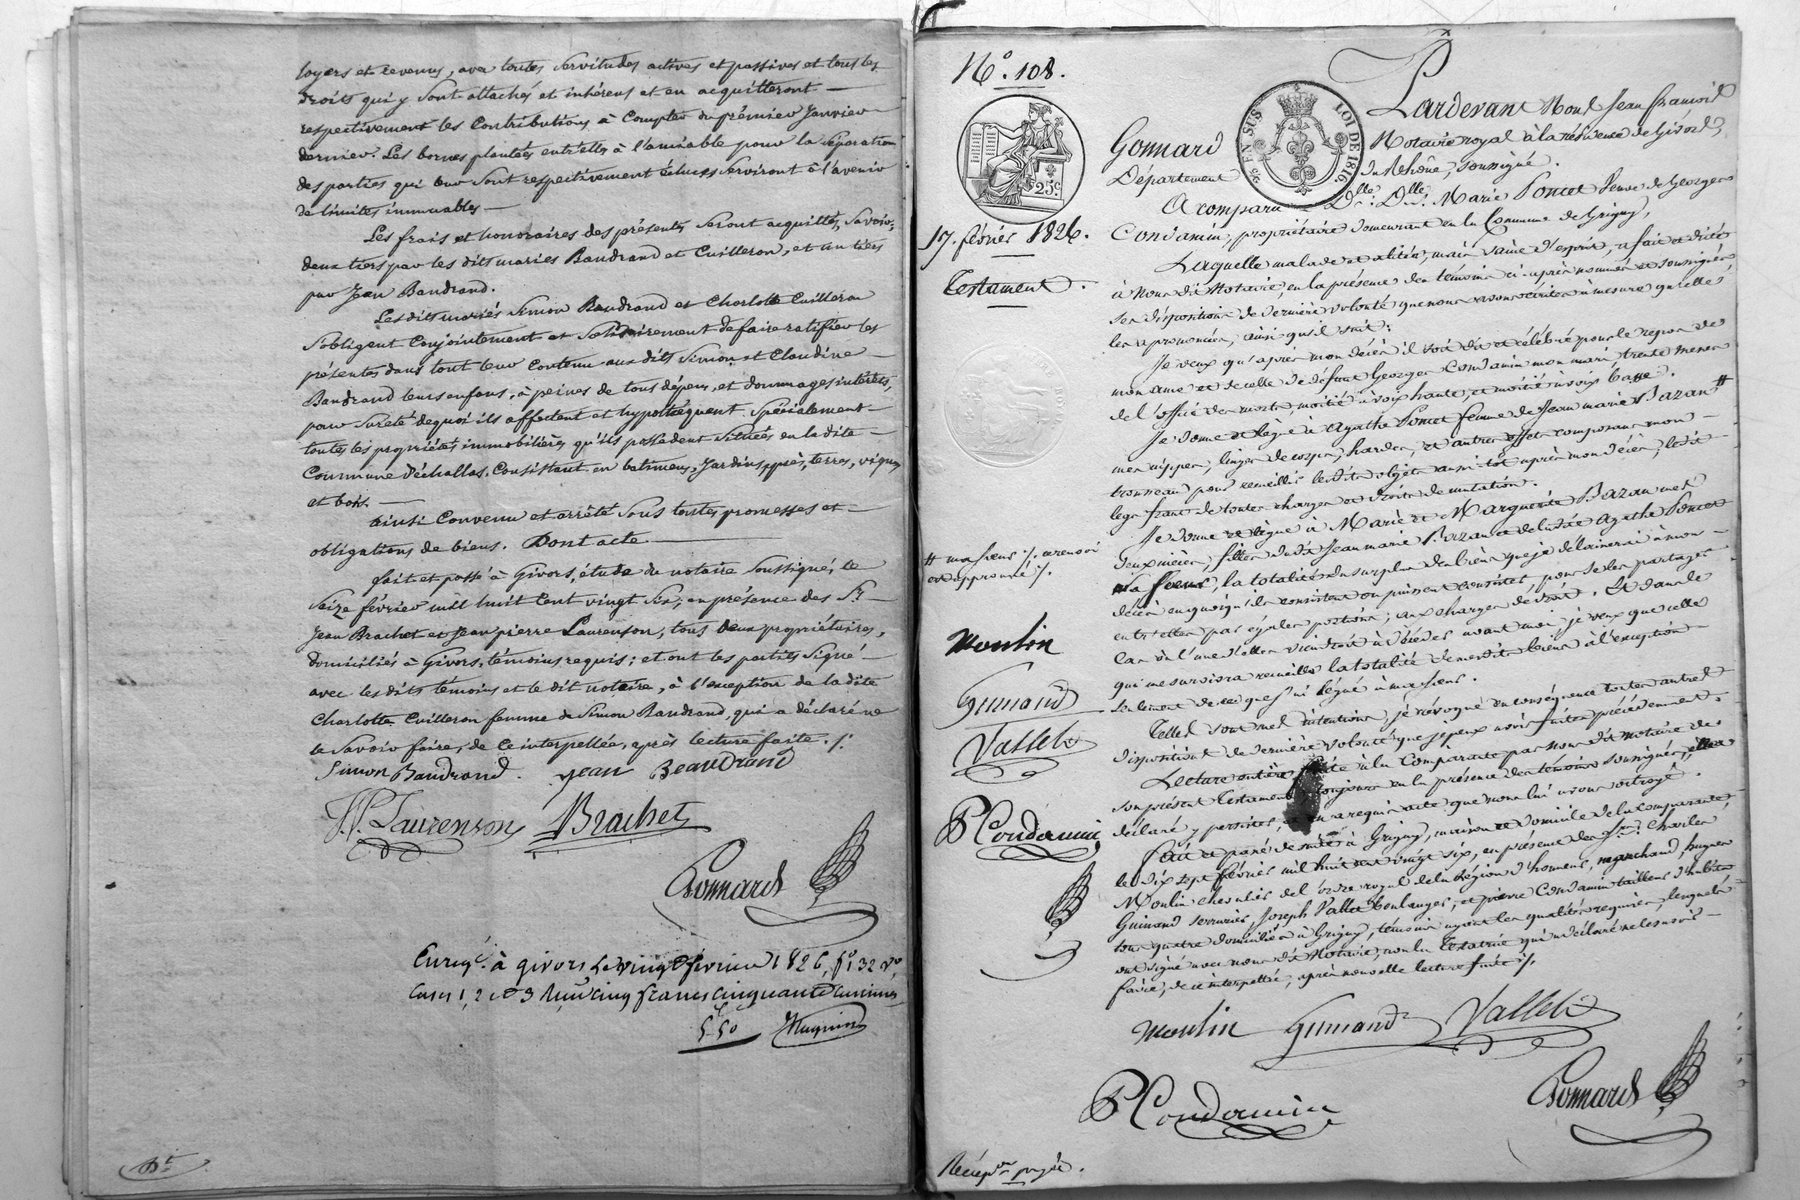 loyers et revenus, avec toutes servitudes actives et passives et tous les
droits qui y sont attachés et inhérens et en acquitteront
respectivement les contributions à compter du prémier Janvier
dernier. Les bornes plantées entr'elles à l'amiable pour la séparation
des parties qui leur sont respectivement échues serviront à l'avenir
de limites immuables
Les frais et honoraires des présentes seront acquittés, savoir:
deux tiers par les dits mariés Baudrand et Cuilleron, et un tiers
par Jean Baudrand.
Les dits mariés Simon Baudrand et Charlotte Cuilleron
s'obligent conjointement et solidairement de faire ratifier les
présentes dans tout leur contenu aux dits Simon et Claudine
Baudrand leurs enfans, à peines de tous dépens, et dommages intérêts,
pour sureté de quoi ils affectent et hypothéquent spécialement
toutes les propriétés immobilières qu'ils possèdent situées en la dite
Commune d'échallas, consistant en batimens, Jardins, près, terres, vignes
et bois.
Ainsi convenu et arrêté sous toutes promesses et
obligations de biens. Dont acte
fait et passé à Givors, étude du notaire soussigné, le
seize février mil huit cent vingt six, en présence des Srs
Jean Brachet et Jean pierre Laurenson, tous deux propriétaires,
domiciliés à Givors, témoins requis; et ont les parties signé
avec les dits témoins et le dit notaire, à l'exception de la dite
Charlotte Cuilleron femme de Simon Baudrand, qui a déclaré ne
le savoir faire, de ce interpellée, après lecture faite ./.
Simon Baudrand. Jean Beaudrand
J.P. Laurenson Brachet
Gonnard
Enregé. à givors le vingt février 1826, fo. 32 Vo,
Cases 1, 2 et 3 Reçu cinq francs cinquante centimes
5f 50
No. 108.
25c
EN SUS
LOI DE 1816
17. février 1826.
Testament.
Pardevant Nous Jean françois
Gonnard Notaire royal à la résidence de Givors,
Département du Rhône, soussigné.
A comparu Dlle. Marie Poncet Veuve de George
Condamin, propriétaire demeurant en la Commune de Grigny,
Laquelle malade et alitée, mais saine d'esprit, a fait et dicté
à nous dit Notaire, en la présence des témoins ci-après nommés et soussignés
ses dispositions de dernière volonté que nous avons écrites à mesure qu'elle
les a prononcées, ainsi qu'il suit:
Je veux qu'après mon décès il soit dit et célébré pour le repos de
mon ame et de celle de défunt George Condamin mon mari, trente messes
de l'office des morts moitié à voix haute, et moitié à voix basse.
Je donne et lègue à Agathe Poncet femme de Jean marie Bazan #
mes nippes, linges de corps, hardes, et autres effets composant mon
trousseau pour recueillir lesdits objets aussi-tôt après mon décès, ledit
legs franc de toutes charges et droits de mutation.
Je donne et lègue à Marie et Marguerite Bazan mes
deux nièces, filles dudit Jean marie Bazan et de ladite Agathe Poncet
ma soeur, la totalité du surplus des biens que je délaisserai à mon
décès en quoi qu'ils consistent ou puissent consister, pour se les partager
entr'elles par égales portions; aux charges de droit. Et dans le
cas où l'une d'elles viendroit à décéder avant moi, je veux que celle
qui me survivra recueille la totalité de mesdits biens à l'exception
seulement de ce que j'ai légué à ma soeur.
Telles sont mes intentions, je révoque en conséquence toutes autres
dispositions de dernière volonté que je peux avoir faites précédemment.
Lecture entière faite à la Comparante par nous dit notaire de
son présent testament, toujours en la présence des témoins soussignés, elle a
déclaré y persister, et en a requis acte que nous lui avons octroyé.
Fait et passé de suite à Grigny, maison et domicile de la comparante,
le dix sept février mil huit cent vingt six, en présence des Srs. Charles
Moulin chevalier de l'ordre royal de la Légion d'honneur, marchand,
Guinand serrurier, Joseph Vallet boulanger, et pierre Condamin tailleur d'habits
tous quatre domiciliés à Grigny, témoins ayant les qualités requises, lesquels
ont signé avec nous dit Notaire, non la Testatrice qui a déclaré ne le savoir
faire, de ce interpellée, après nouvelle lecture faite ./.
# ma soeur ./. renvoi
et approuvé ./.
Moulin
Guinand
Vallet
P Condamin
Moulin Guinand Vallet
P Condamin
Gonnard